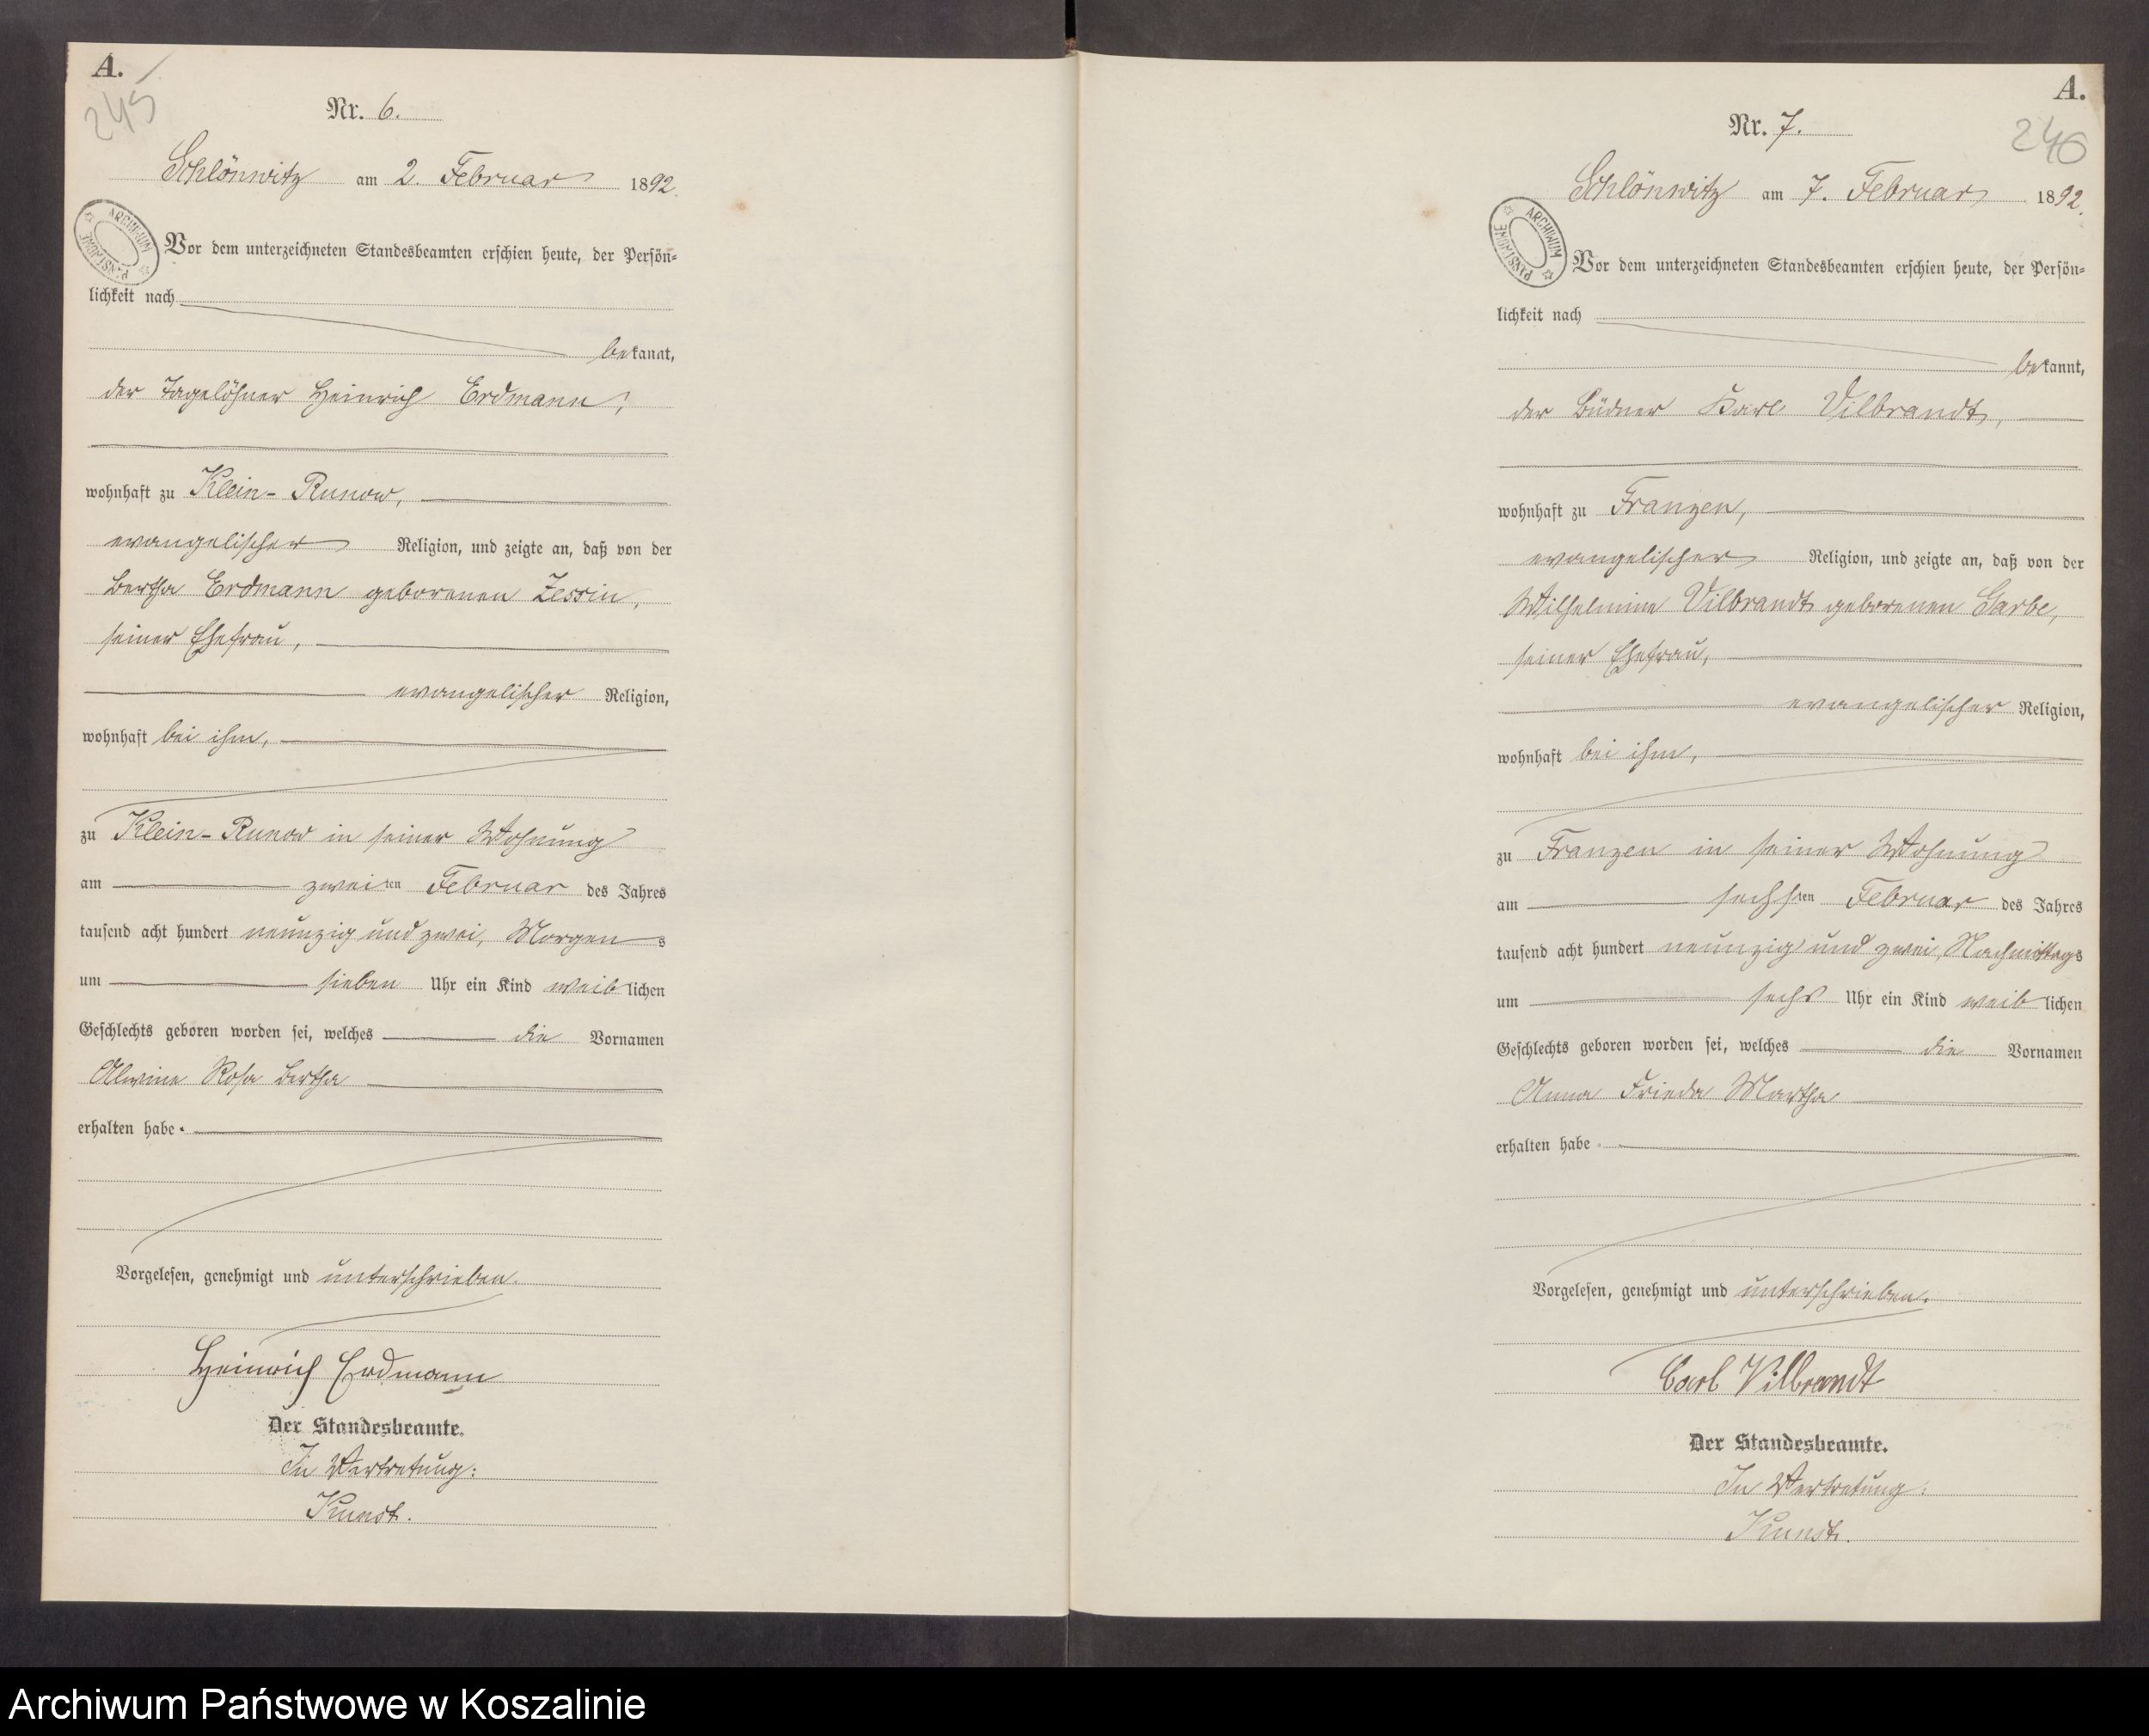 A.
245
Nr. 6.
Schlönwitz am 2. Februar 1892.
ARCHIWUM PAŃSTWOWE
Vor dem unterzeichneten Standesbeamten erschien heute, der Persön-
lichkeit nach
bekannt,
der Tagelöhner Heinrich Erdmann,
wohnhaft zu Klein-Runow,
evangelischer Religion, und zeigte an, daß von der
Bertha Erdmann geborenen Zessin,
seiner Ehefrau,
evangelischer Religion,
wohnhaft bei ihm,
zu Klein-Runow in seiner Wohnung
am zweiten Februar des Jahres
tausend acht hundert neunzig und zwei, Morgens
um sieben Uhr ein Kind weiblichen
Geschlechts geboren worden sei, welches die Vornamen
Alwine Rosa Bertha
erhalten habe.
Vorgelesen, genehmigt und unterschrieben.
Heinrich Erdmann
Der Standesbeamte.
In Vertretung:
Kunst.
A.
246
Nr. 7.
Schlönwitz am 7. Februar 1892.
ARCHIWUM PAŃSTWOWE
Vor dem unterzeichneten Standesbeamten erschien heute, der Persön-
lichkeit nach
bekannt,
der Büdner Karl Vilbrandt,
wohnhaft zu Franzen,
evangelischer Religion, und zeigte an, daß von der
Wilhelmine Vilbrandt geborenen Garbe,
seiner Ehefrau,
evangelischer Religion,
wohnhaft bei ihm,
zu Franzen in seiner Wohnung
am sechsten Februar des Jahres
tausend acht hundert neunzig und zwei, Nachmittags
um sechs Uhr ein Kind weiblichen
Geschlechts geboren worden sei, welches die Vornamen
Anna Frieda Martha
erhalten habe.
Vorgelesen, genehmigt und unterschrieben.
Carl Vilbrandt
Der Standesbeamte.
In Vertretung:
Kunst.
Archiwum Państwowe w Koszalinie